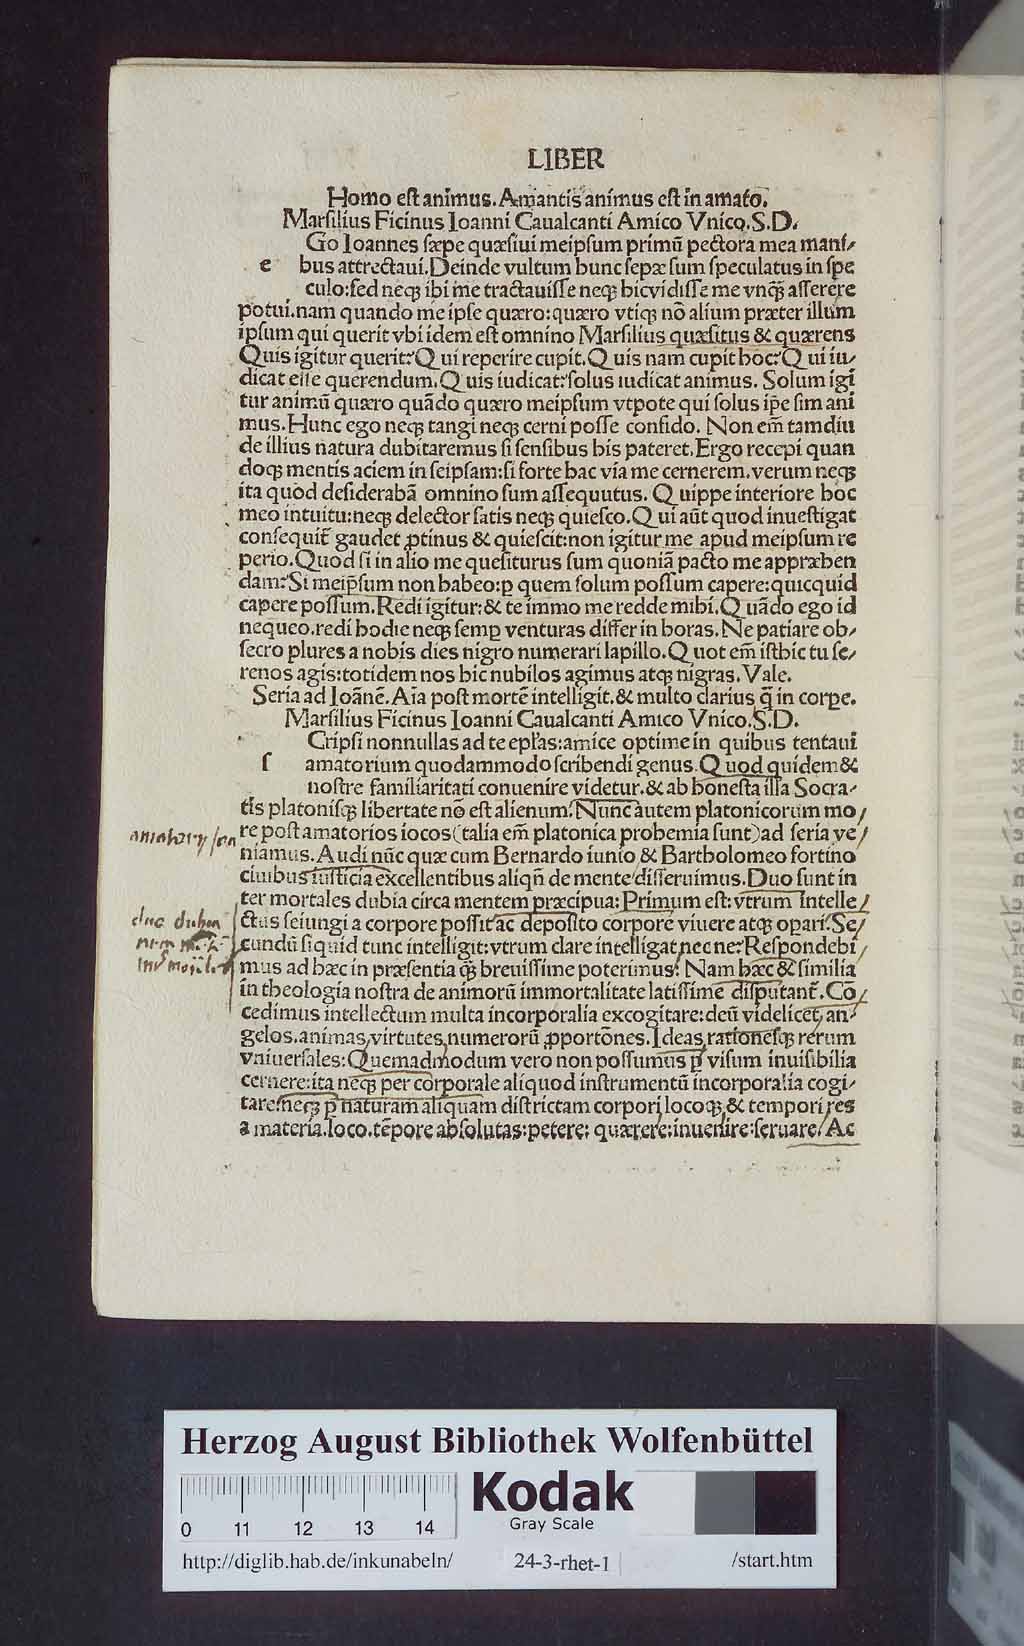 LIBER
Homo est animus. Amantis animus est in amato.
Marsilius Ficinus Ioanni Caualcanti Amico Vnico.S.D.
Go Ioannes sæpe quæsiui meipsum primũ pectora mea mani/
e bus attrectaui.Deinde vultum hunc sepæ sum speculatus in spe
culo:sed neqꝫ ibi me tractauisse neqꝫ hic vidisse me vnqꝫ asserere
potui.nam quando me ipse quæro:quæro vtiqꝫ nõ alium præter illum
ipsum qui querit vbi idem est omnino Marsilius quæsitus & quærens
Quis igitur querit?Qui reperire cupit.Quis nam cupit hoc?Qui iu/
dicat esse querendum.Quis iudicat?solus iudicat animus. Solum igi
tur animũ quæro quãdo quæro meipsum vtpote qui solus ip̃e sim ani
mus.Hunc ego neqꝫ tangi neqꝫ cerni posse confido. Non em̃ tamdiu
de illius natura dubitaremus si sensibus his pateret.Ergo recepi quan
doqꝫ mentis aciem in seipsam:si forte hac via me cernerem.verum neqꝫ
ita quod desiderabã omnino sum assequutus. Quippe interiore hoc
meo intuitu:neqꝫ delector satis neqꝫ quiesco.Qui aũt quod inuestigat
consequit̃ gaudet ꝓtinus & quiescit:non igitur me apud meipsum re
perio.Quod si in alio me quesiturus sum quoniã pacto me appræhen
dam?Si meip̃sum non habeo:ꝑ quem solum possum capere:quicquid
capere possum.Redi igitur:& te immo me redde mihi.Quãdo ego id
nequeo.redi hodie neqꝫ semꝑ venturas differ in horas.Ne patiare ob/
secro plures a nobis dies nigro numerari lapillo.Quot em̃ istbic tu se/
renos agis:totidem nos hic nubilos agimus atqꝫ nigras.Vale.
Seria ad Ioãnẽ.Aĩa post mortẽ intelligit.& multo clarius q̃ in corꝑe.
Marsilius Ficinus Ioanni Caualcanti Amico Vnico.S.D.
Cripsi nonnullas ad te epl̃as:amice optime in quibus tentaui
s amatorium quodammodo scribendi genus.Quod quidem &
nostre familiaritati conuenire videtur.& ab honesta illa Socra/
tis platonisqꝫ libertate nõ est alienum.Nunc autem platonicorum mo
re post amatorios iocos(talia em̃ platonica prohemia sunt)ad seria ve
niamus.Audi nũc quæ cum Bernardo iunio & Bartholomeo fortino
ciuibus iusticia excellentibus aliqñ de mente disseruimus.Duo sunt in
ter mortales dubia circa mentem præcipua:Primum est:vtrum intelle
ctus seiungi a corpore possit ac deposito corpore viuere atqꝫ opari.Se
cundũ si quid tunc intelligit:vtrum clare intelligat nec ne?Respondebi
mus ad hæc in præsentia q̃ꝫ breuissime poterimus. Nam hæc & similia
in theologia nostra de animorũ immortalitate latissime disputant̃.Cõ
cedimus intellectum multa incorporalia excogitare:deũ videlicet, an/
gelos.animas,virtutes,numerorũ ꝓportõnes.Ideas,rationesqꝫ rerum
vniuersales:Quemadmodum vero non possumus ꝑ visum inuisibilia
cernere:ita neqꝫ per corporale aliquod instrumentũ incorporalia cogi/
tare:neqꝫ ꝑ naturam aliquam districtam corpori locoqꝫ & tempori res
a materia.loco.tẽpore absolutas:petere: quærere:inuenire:seruare.Ac
Herzog August Bibliothek Wolfenbüttel
Kodak
Gray Scale
0 11 12 13 14
http://diglib.hab.de/inkunabeln/ 24-3-rhet-1 /start.htm